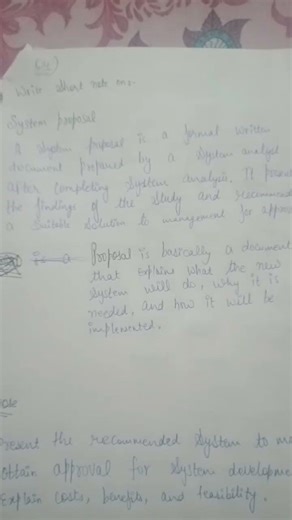 6(a)
Write short note on:-
System proposal
A system proposal is a formal written
document prepared by a system analyst
after completing system analysis. It
the findings of the study and recommend
a suitable solution to management for
Proposal is basically a document
that explains what the new
system will do, why it is
needed, and how it will be
implemented.
present the recommended system to
obtain approval for system
explain costs, benefits, and feasibility.